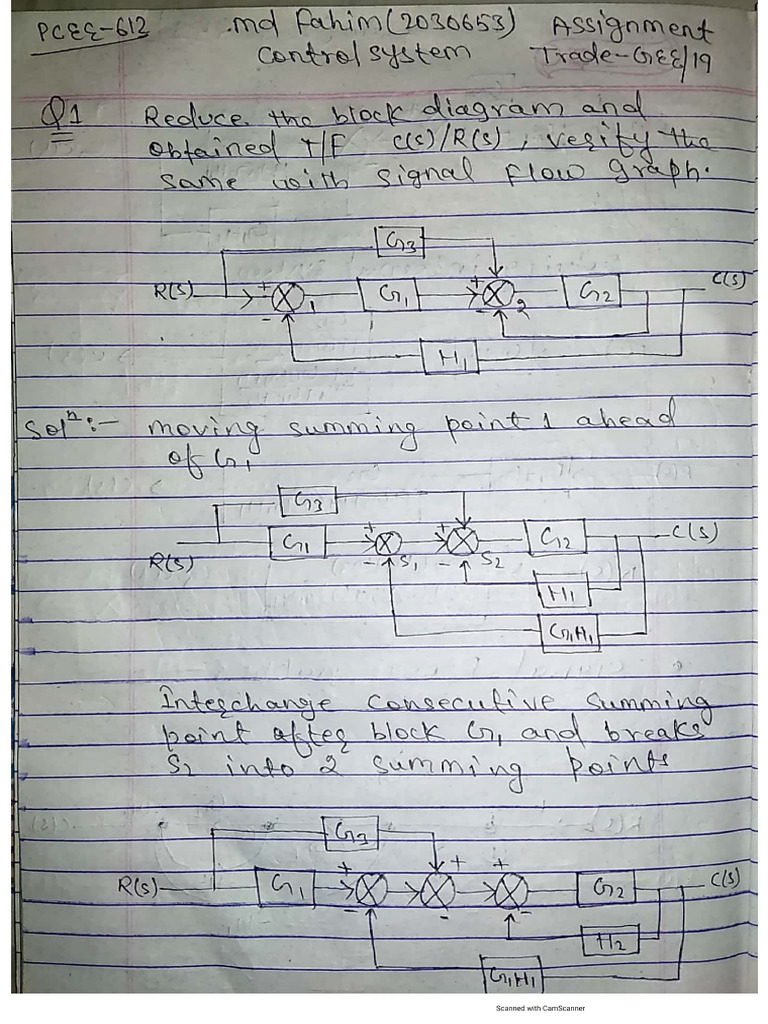 PCEE-612 .md Fahim (2030653) Assignment
Control system Trade-GEE/19
Q1 Reduce the block diagram and
obtained T/F C(s)/R(s), verify the
same with signal flow graph.
G3
R(S) + 1 G1 + 2 G2 C(S)
- -
H1
Solⁿ:- moving summing point 1 ahead
of G1
G3
R(S) G1 + S1 + S2 G2 C(S)
- -
H1
G1H1
Interchange consecutive summing
point after block G1 and breaks
S2 into 2 summing points
G3
R(S) G1 + + + G2 C(S)
- - -
H2
G1H1
Scanned with CamScanner